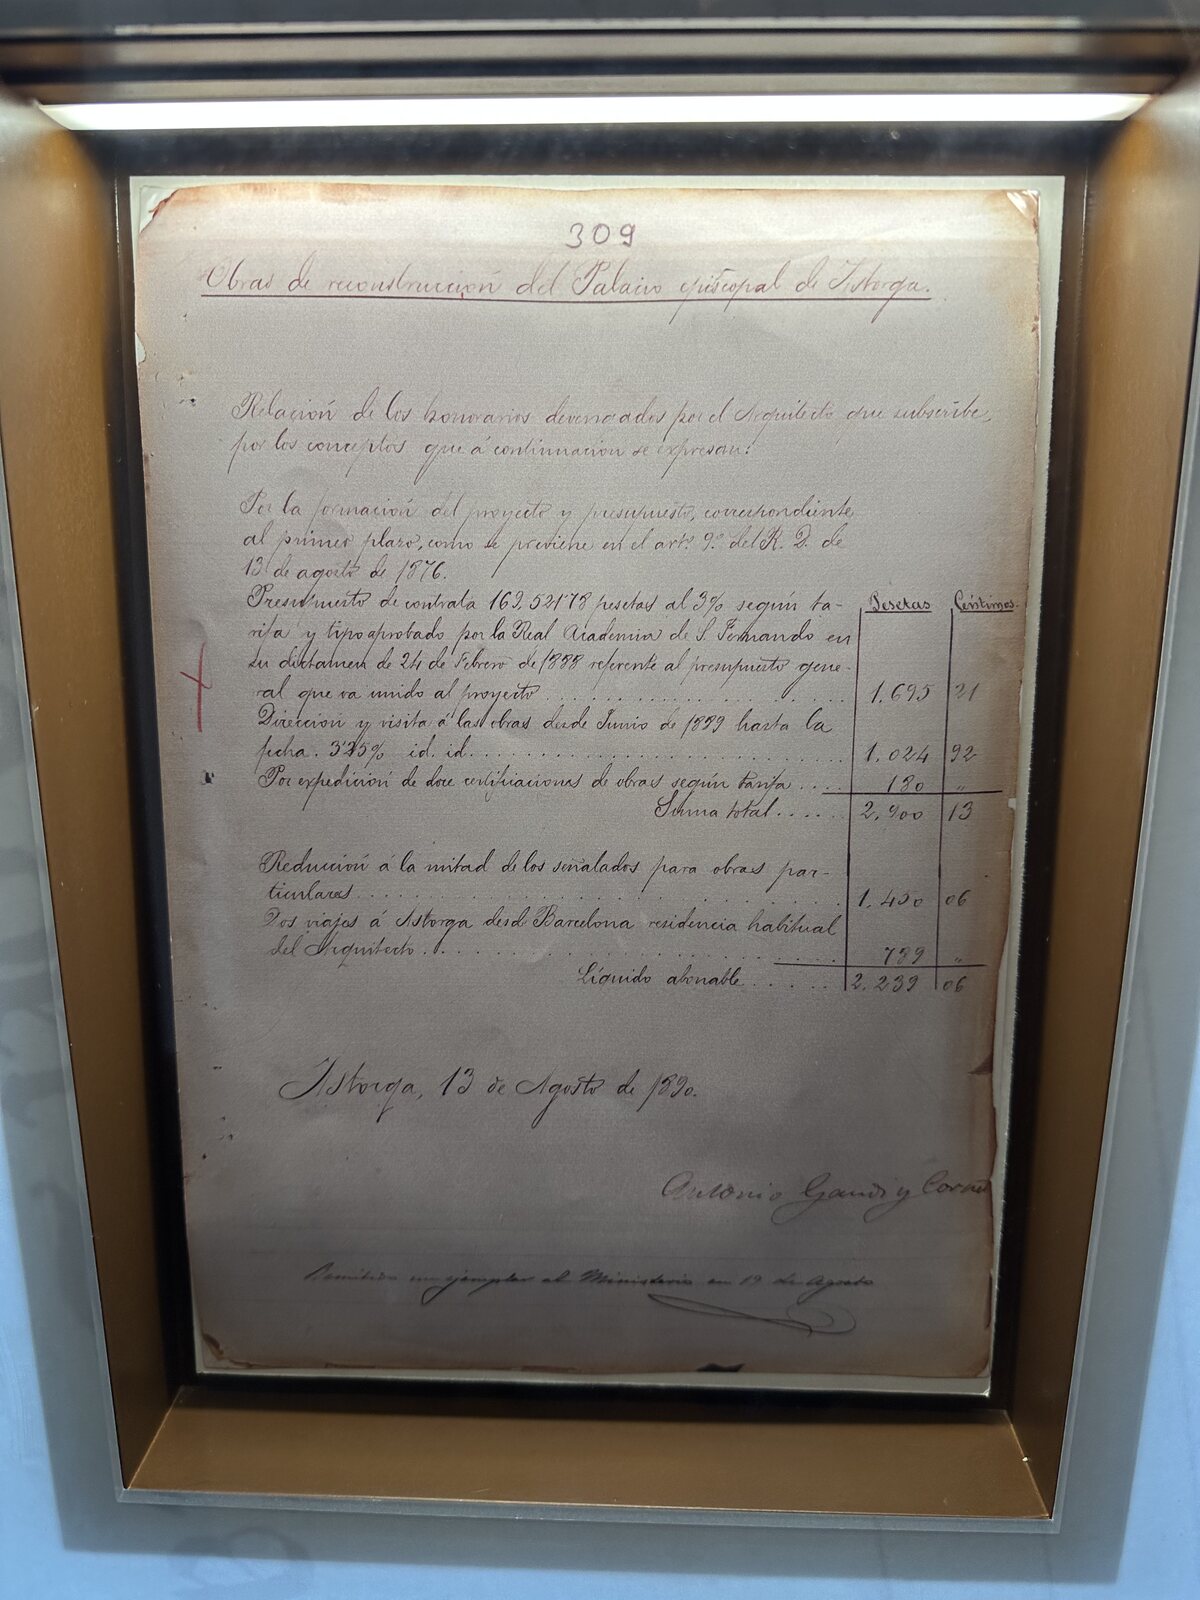 309
Obras de reconstrucción del Palacio episcopal de Astorga.
Relación de los honorarios devengados por el Arquitecto que subscribe,
por los conceptos que á continuación se expresan:
Por la formación del proyecto y presupuesto, correspondiente
al primer plazo, como se previene en el artº 9º del R. D. de
13 de agosto de 1876.
Presupuesto de contrata 169.521'78 pesetas al 3% según ta- Pesetas Céntimos.
rifa y tipo aprobado por la Real Academia de S. Fernando en
su dictamen de 24 de Febrero de 1888 referente al presupuesto gene-
ral que va unido al proyecto . . . . . . . . . . . . . . . 1.695 21
Dirección y visita á las obras desde Junio de 1889 hasta la
fecha. 3'25% id. id. . . . . . . . . . . . . . . . . . . . 1.024 92
Por expedición de doce certificaciones de obras según tarifa . . . . 180 "
Suma total . . . . . . 2.900 13
Reducción á la mitad de los señalados para obras par-
ticulares . . . . . . . . . . . . . . . . . . . . . . . . 1.450 06
Dos viajes á Astorga desd Barcelona residencia habitual
del Arquitecto . . . . . . . . . . . . . . . . . . . . . 789 "
Líquido abonable . . . . . . 2.239 06
Astorga, 13 de Agosto de 1890.
Antonio Gaudi y Cornet
Remitido un ejemplar al Ministerio en 19 de Agosto